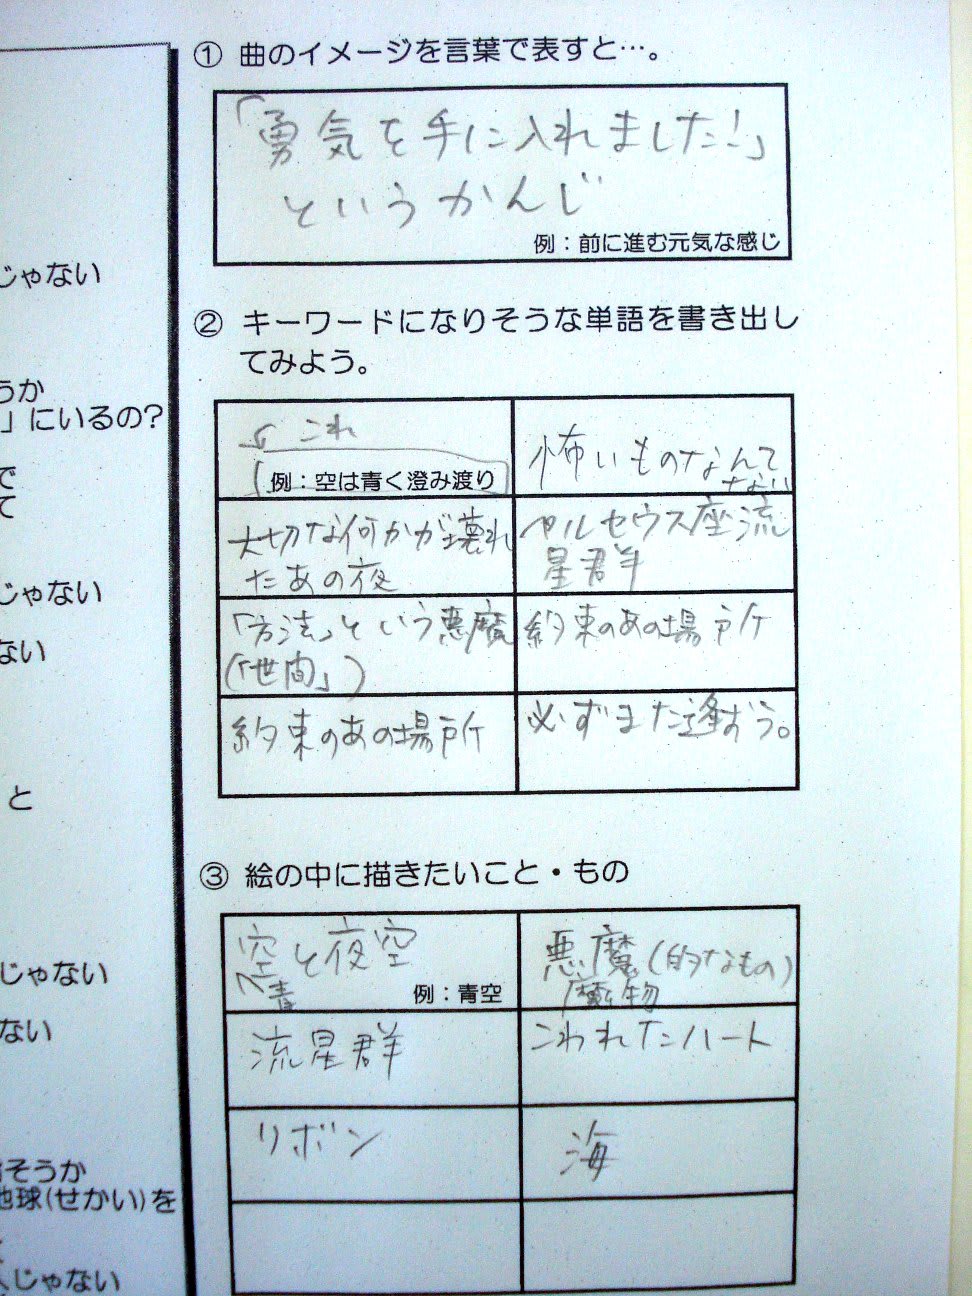 じゃない
うか
」にいるの?
で
て
じゃない
ない
と
じゃない
ない
そうか
地球(せかい)を
じゃない
① 曲のイメージを言葉で表すと…。
「勇気を手に入れました!」
というかんじ
例：前に進む元気な感じ
② キーワードになりそうな単語を書き出し
てみよう。
これ
例：空は青く澄み渡り
怖いものなんて
ない
大切な何かが壊れ
たあの夜
ペルセウス座流
星群
「方法」という悪魔
(「世間」)
約束のあの場所
約束のあの場所
必ずまた逢おう。
③ 絵の中に描きたいこと・もの
空と夜空
青
例：青空
悪魔(的なもの)
魔物
流星群
こわれたハート
リボン
海